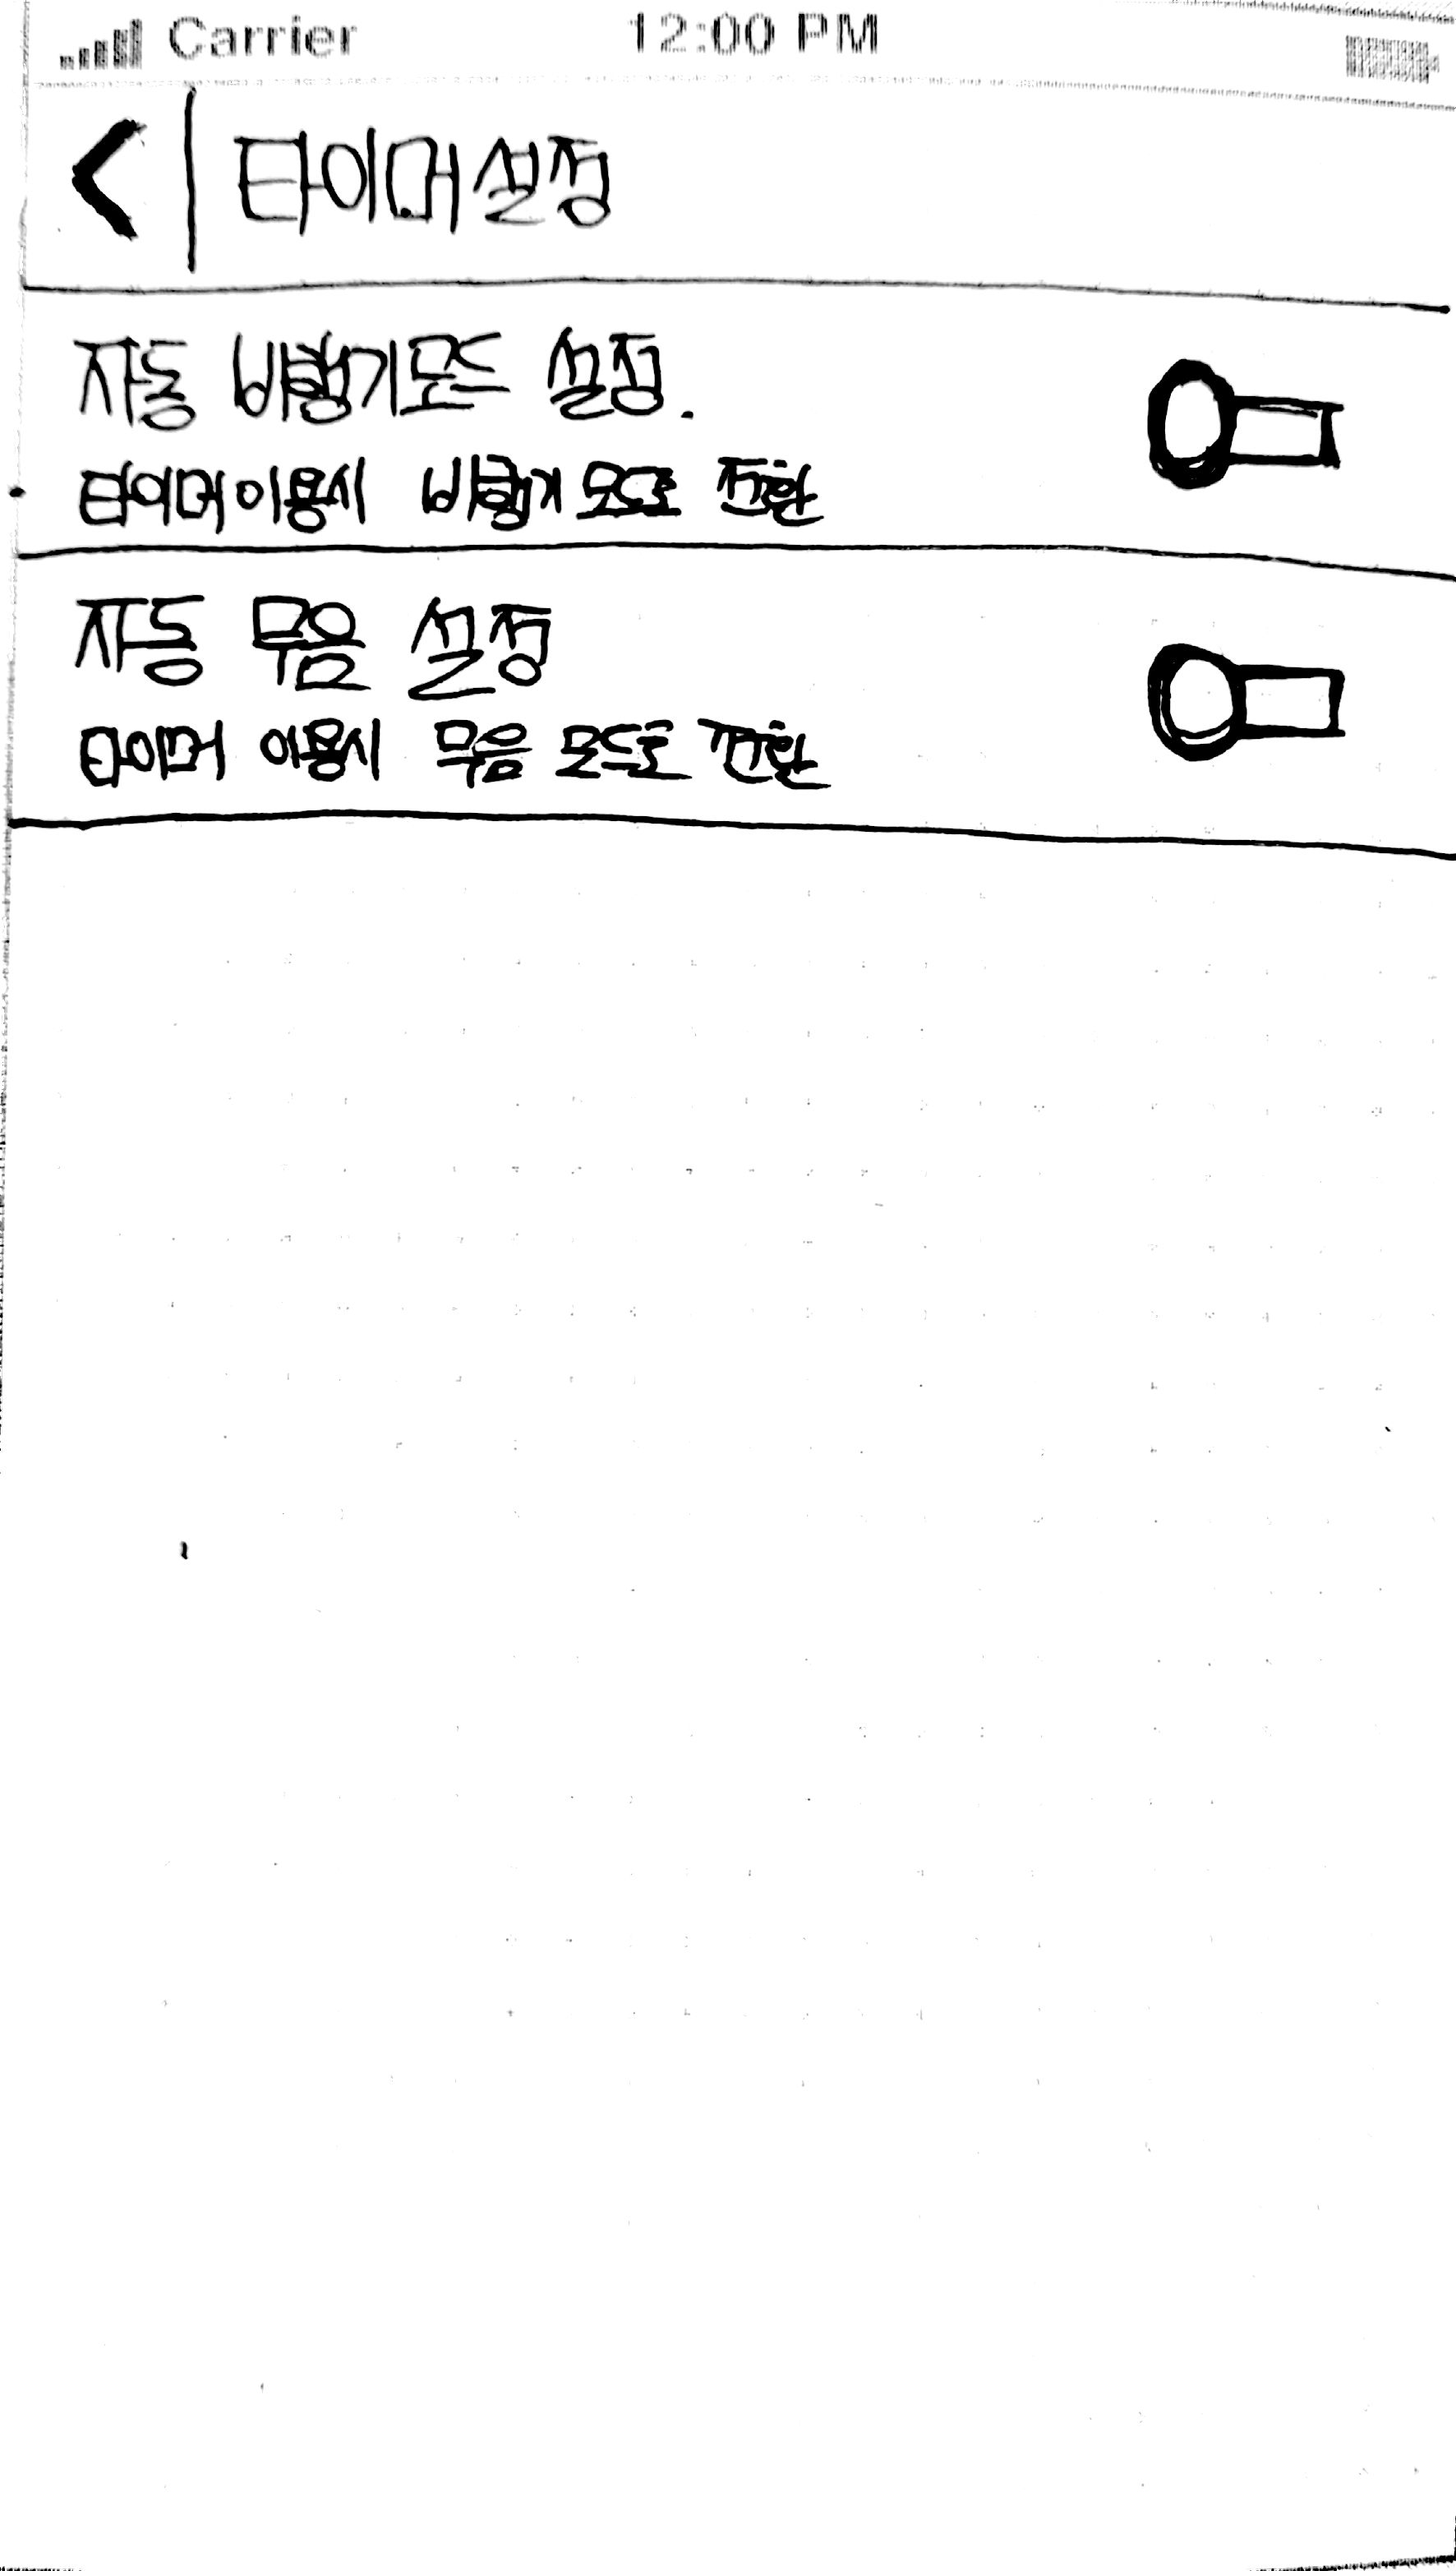 Carrier 12:00 PM
타이머 설정
자동 비행기모드 설정.
타이머 이용시 비행기 모드로 전환
자동 무음 설정
타이머 이용시 무음 모드로 전환